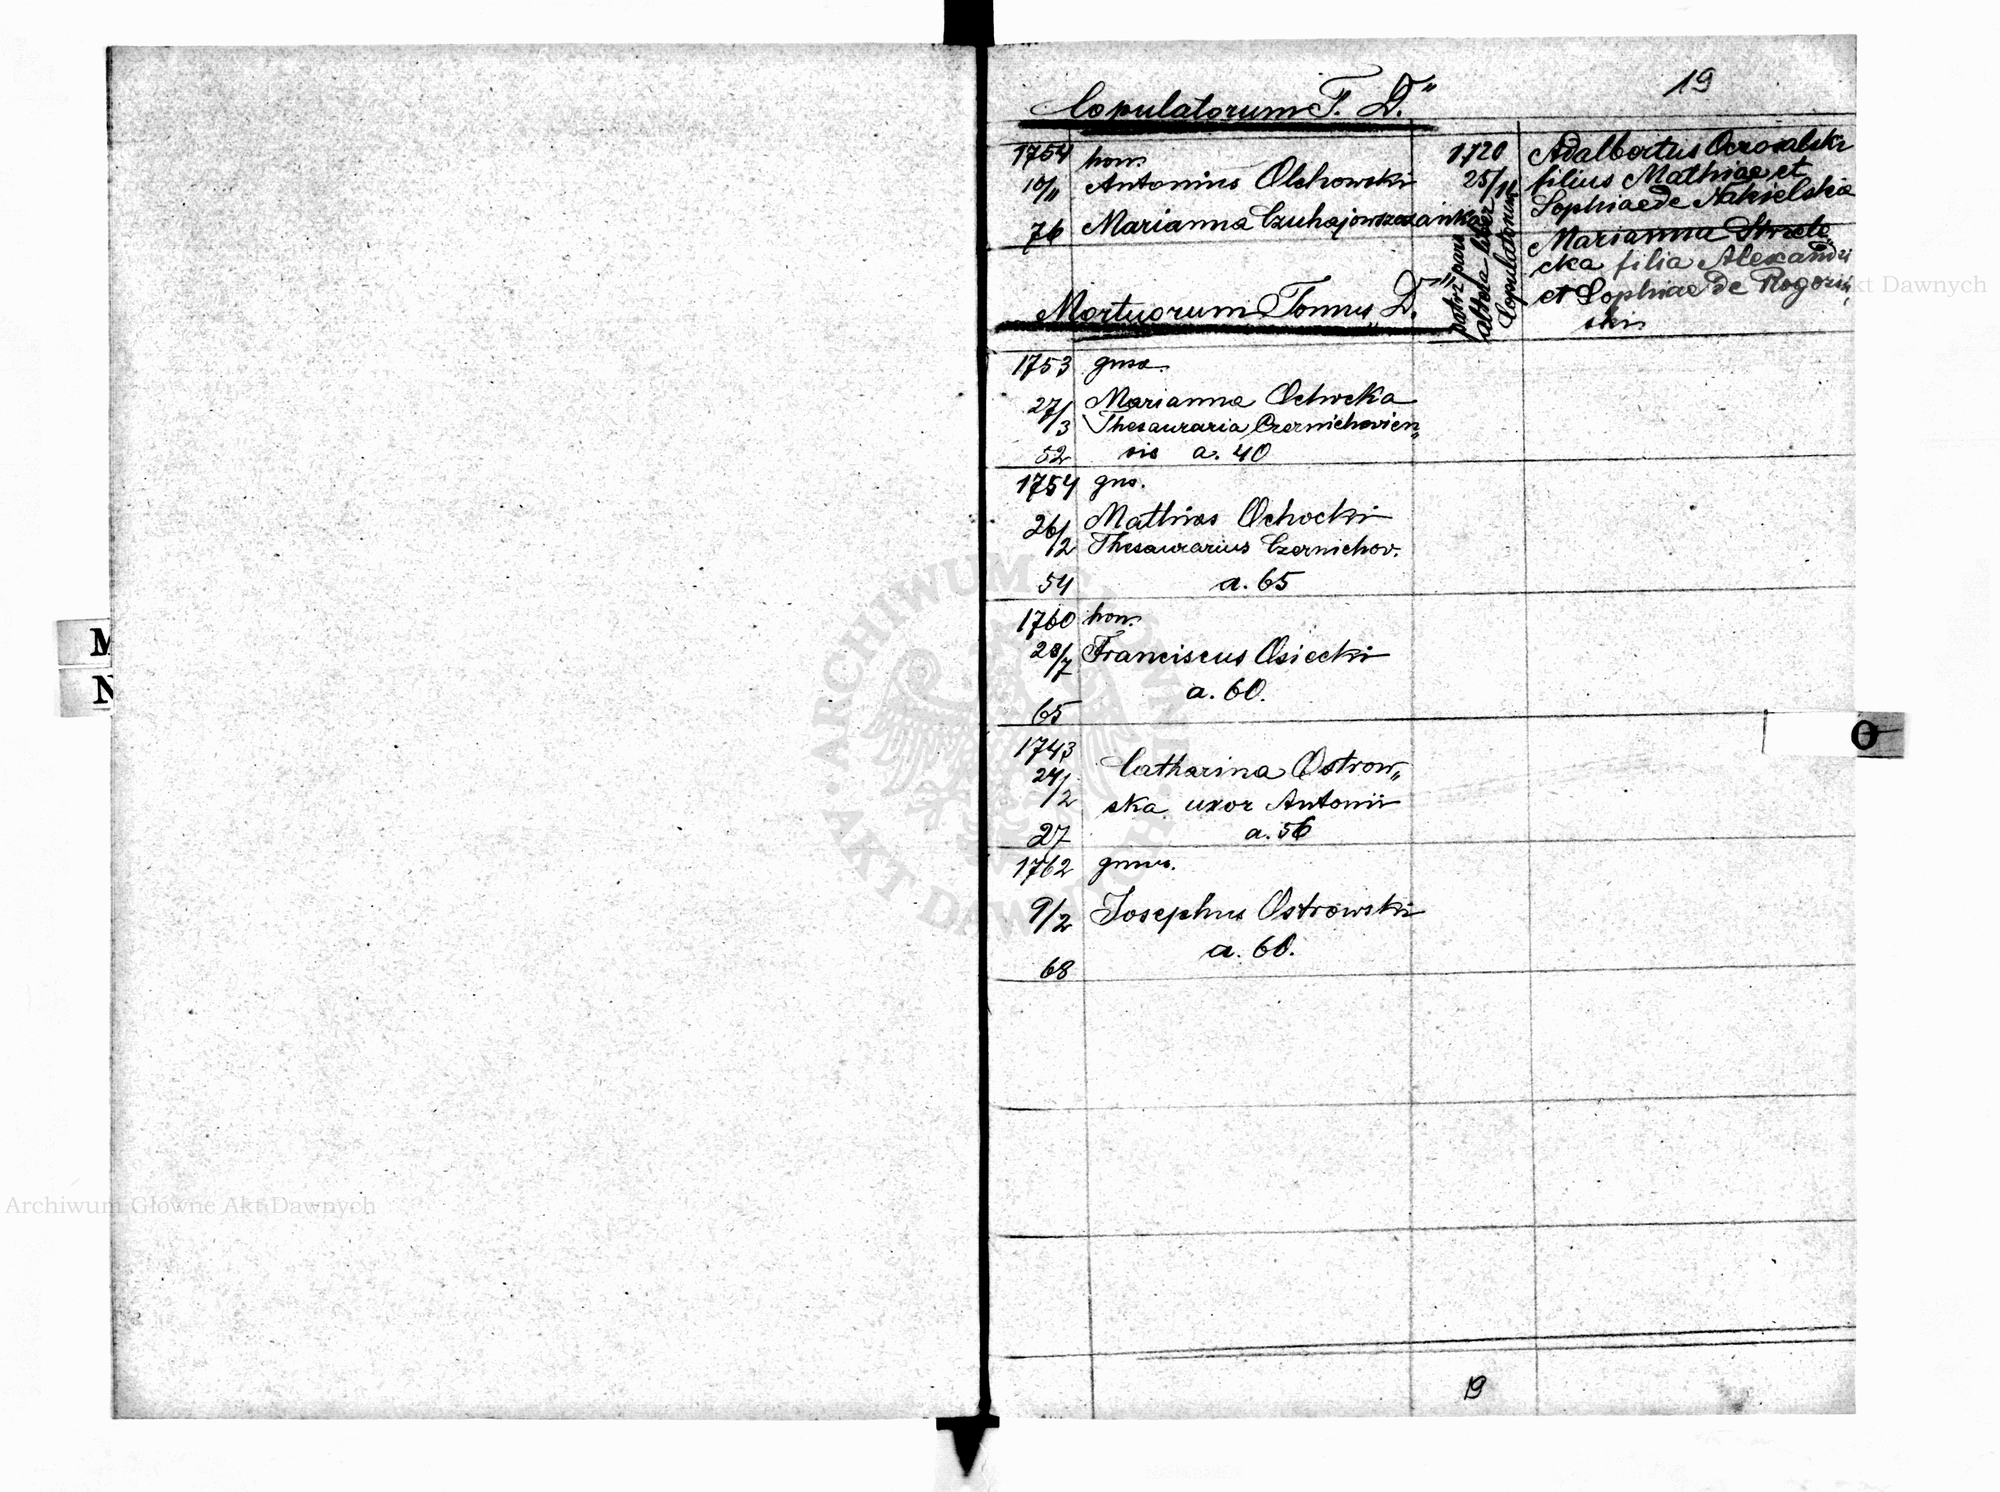 19
Copulatorum T. D."
1754 hon.
10/11 Antonius Olchowski
76 Marianna
1720 Adalbertus
25/11 filius Mathiae et
Sophiae de Nakielskie
Marianna Strzele
cka filia Alexandri
et Sophiae de Rogoziń
ski
patrz pars
altera liber
Copulatorum
Mortuorum Tomus D."
1753 gnsa.
27/3 Marianna Ochocka
Thesauraria Czernichovien„
52 sis a. 40
1754 gns.
26/2 Mathias Ochocki
Thesaurarius Czernichov.
54 a. 65
1760 hon.
28/7 Franciscus Osiecki
a. 60.
65
1743
24/2 Catharina Ostrow„
ska uxor Antonii
27 a. 56
1762 gnsus.
9/2 Josephus Ostrowski
a. 60.
68
19
M
N
O
ARCHIWUM GŁÓWNE AKT DAWNYCH
Archiwum Główne Akt Dawnych
Akt Dawnych